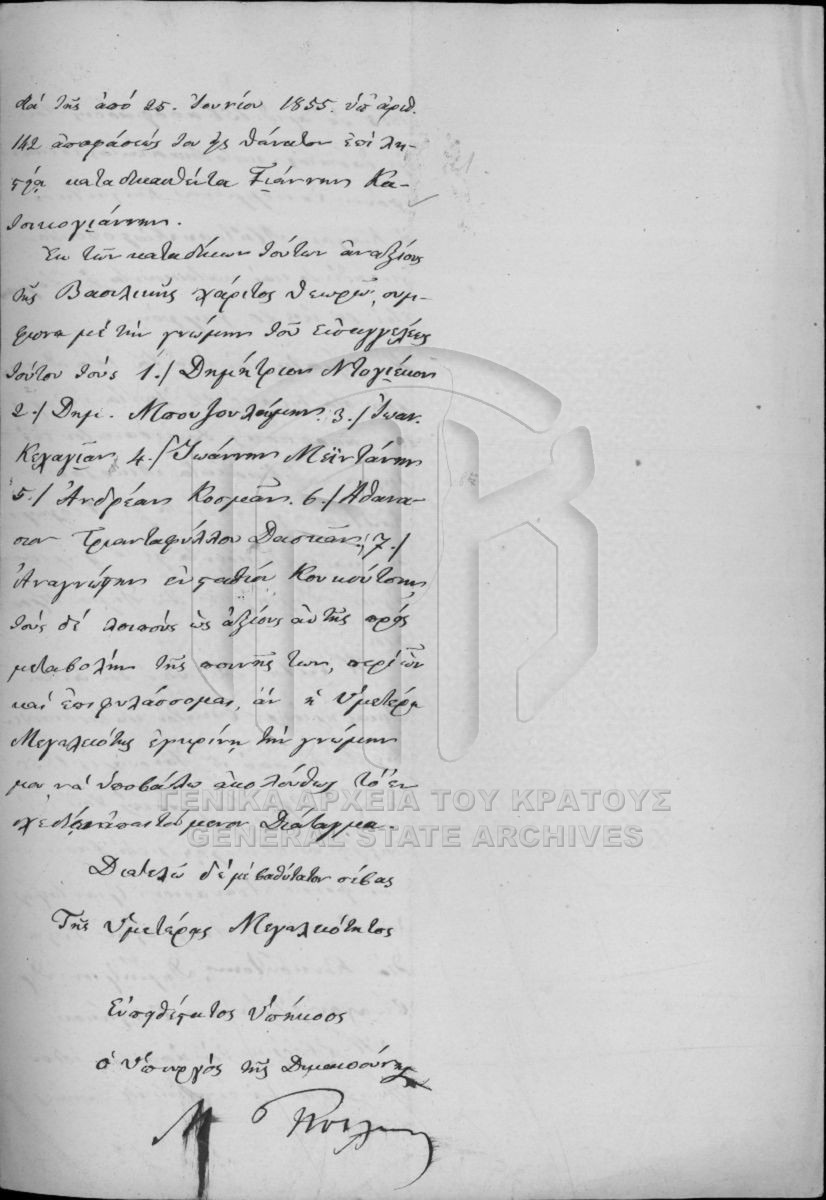 διά τῆς ἀπό 25. Ἰουνίου 1855. ὑπ' ἀριθ.
142 ἀποφάσεώς του εἰς θάνατον ἐπί λη-
στείᾳ καταδικασθέντα Γιάννην Κα-
τσικογιάννην.
Ἐκ τῶν καταδίκων τούτων ἀναξίους
τῆς Βασιλικῆς χάριτος θεωρῶ, συμ-
φώνως μέ τήν γνώμην τοῦ εἰσαγγελέως
τούτου τούς 1./ Δημήτριον
2./ Δημ. 3./ Ἰωάν.
Κεχαγιᾶν, 4./ Ἰωάννην Μεϊντάνην
5./ Ἀνδρέαν Κοσμᾶν. 6./ Ἀθανά-
σιον Τριανταφύλλου Δασκαν, 7./
Ἀναγνώστην
τούς δέ λοιπούς ὡς ἀξίους αὐτῆς πρός
μεταβολήν τῆς ποινῆς των, περί ὧν
καί ἐπιφυλάσσομαι, ἄν ἡ Ὑμετέρα
Μεγαλειότης ἐγκρίνῃ τήν γνώμην
μου νά ὑποβάλω ἀκολούθως τό ἐν
σχεδίῳ ἀπαιτούμενον Διάταγμα.
Διατελῶ δέ μέ βαθύτατον σέβας
Τῆς Ὑμετέρας Μεγαλειότητος
Εὐπειθέστατος Ὑπήκοος
ὁ Ὑπουργός τῆς Δικαιοσύνης
ΓΕΝΙΚΑ ΑΡΧΕΙΑ ΤΟΥ ΚΡΑΤΟΥΣ
GENERAL STATE ARCHIVES